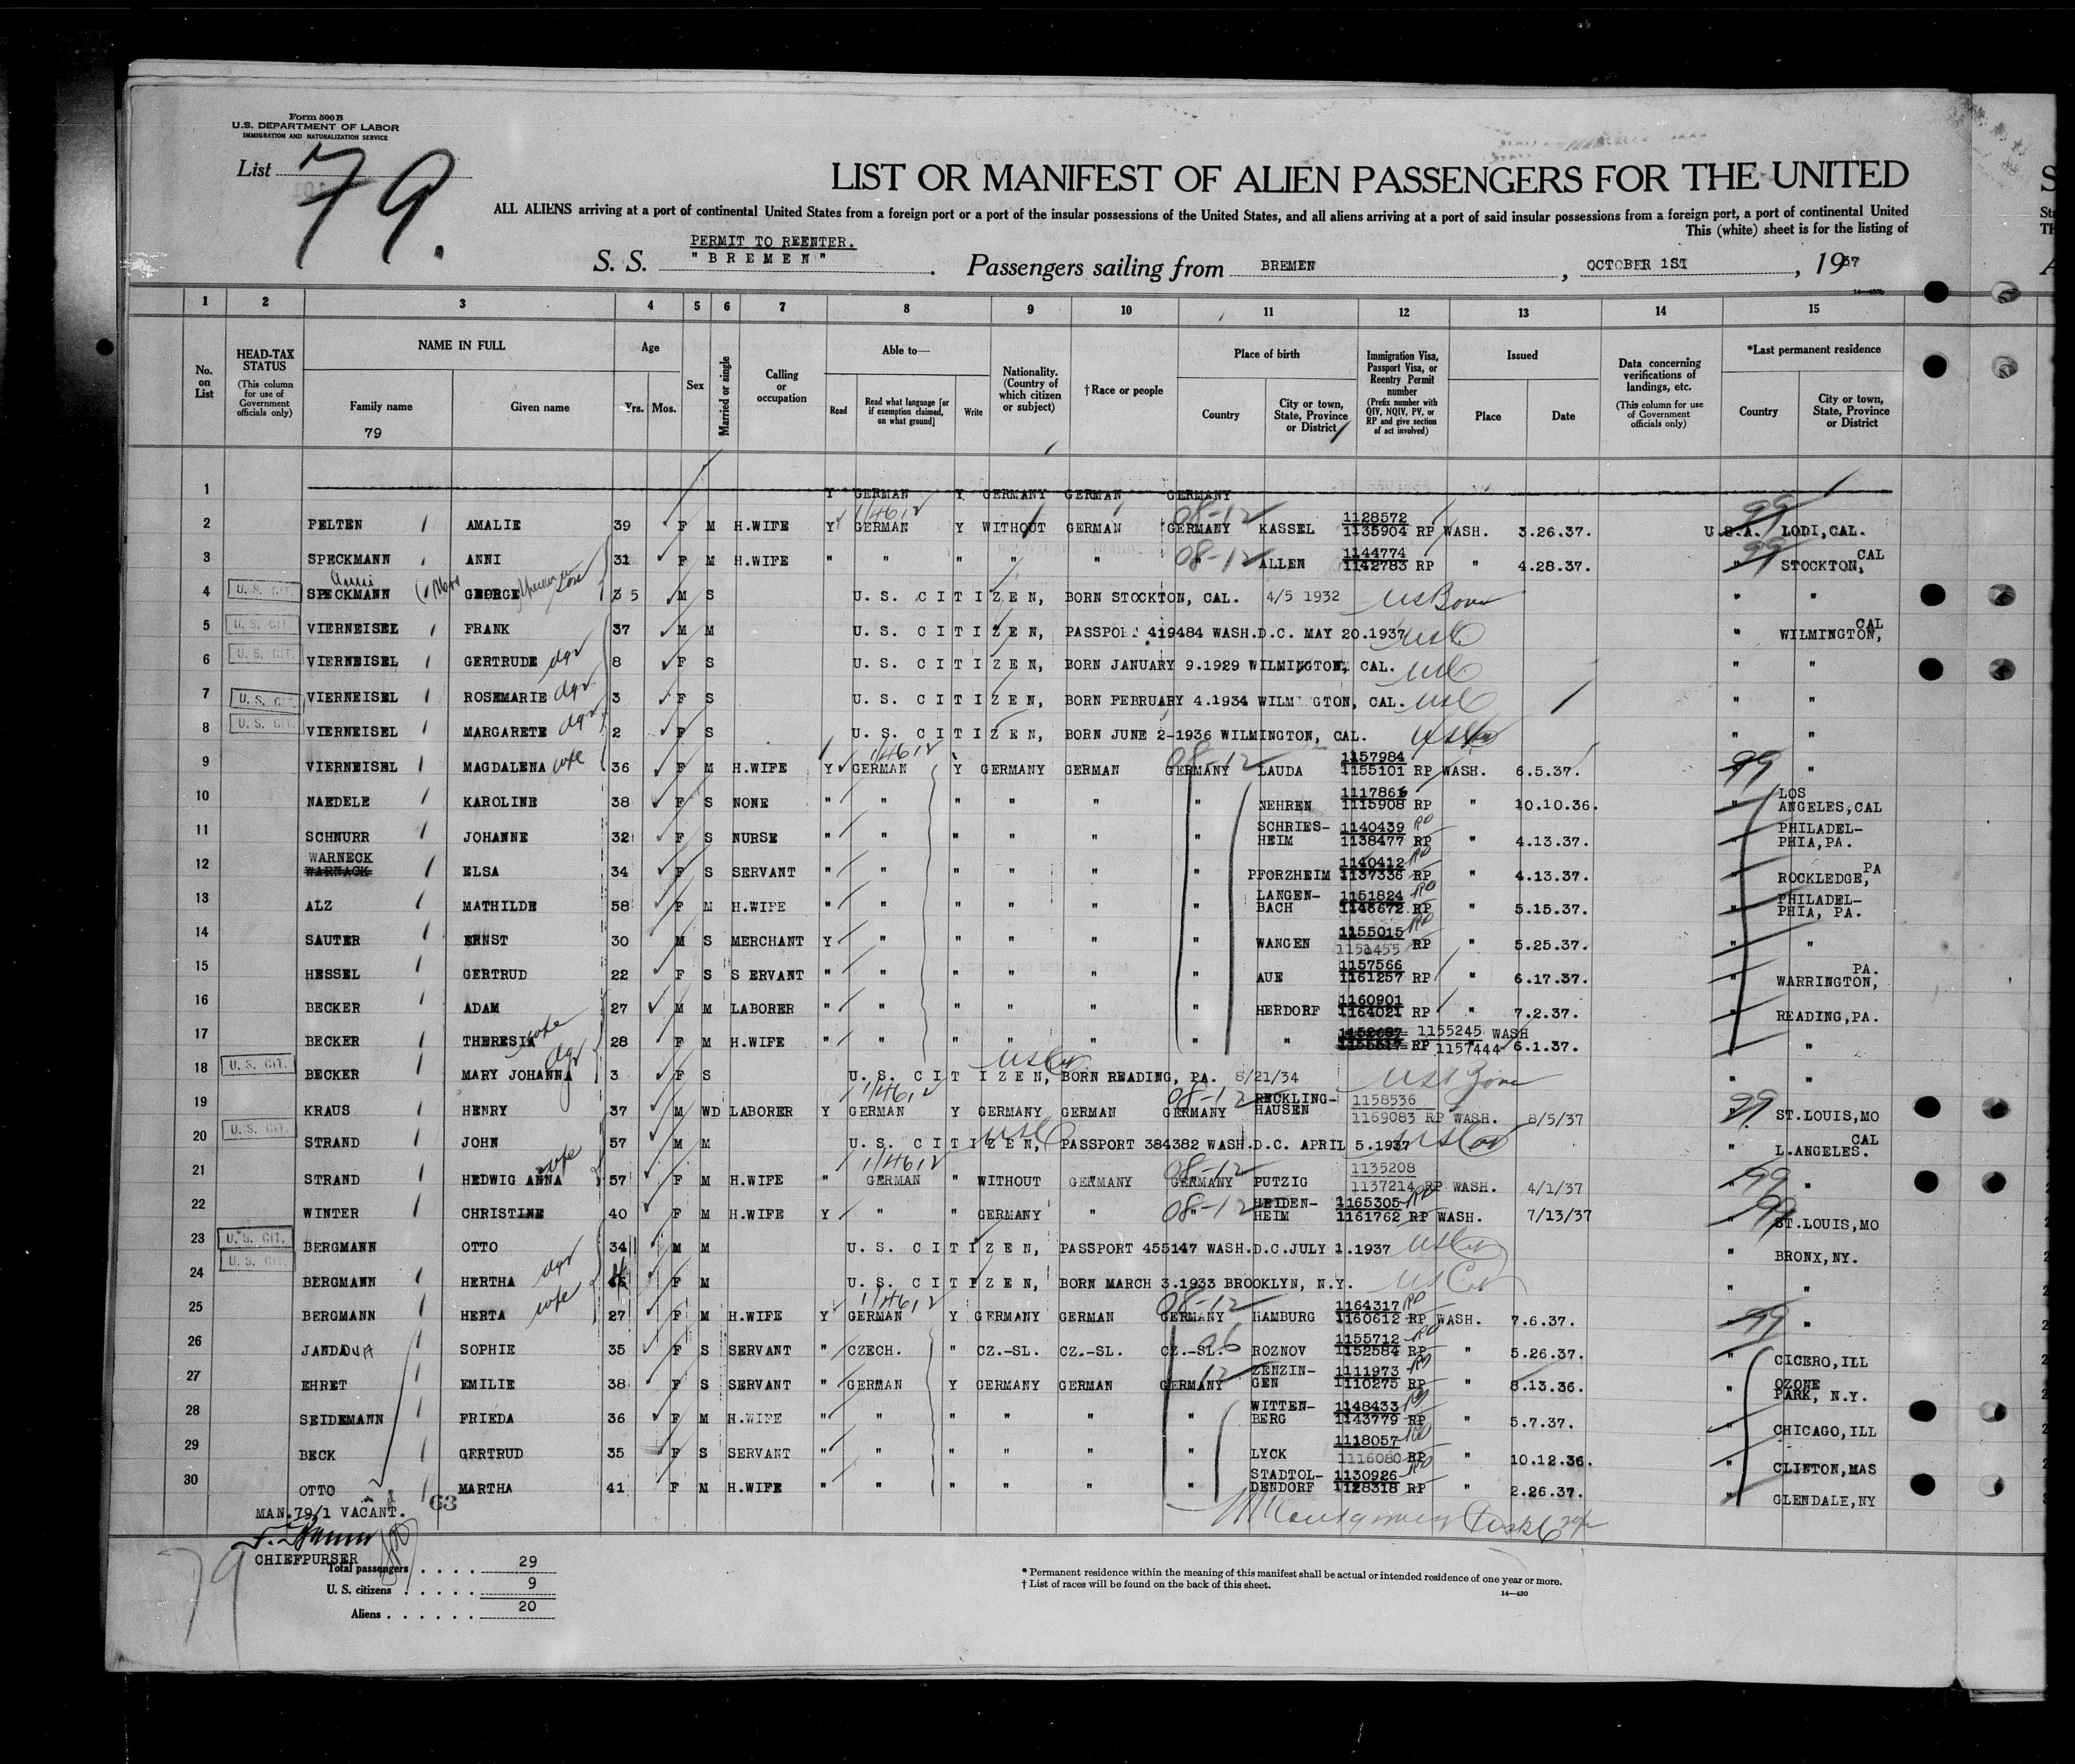 Form 500 B
U.S. DEPARTMENT OF LABOR
IMMIGRATION AND NATURALIZATION SERVICE
List 79.
LIST OR MANIFEST OF ALIEN PASSENGERS FOR THE UNITED
ALL ALIENS arriving at a port of continental United States from a foreign port or a port of the insular possessions of the United States, and all aliens arriving at a port of said insular possessions from a foreign port, a port of continental United
This (white) sheet is for the listing of
PERMIT TO REENTER.
S. S. "BREMEN". Passengers sailing from BREMEN, OCTOBER 1ST, 1937
1 2 3 4 5 6 7 8 9 10 11 12 13 14 15
No. on List
HEAD-TAX STATUS (This column for use of Government officials only)
NAME IN FULL Family name Given name
79
Age Yrs. Mos.
Sex
Married or single
Calling or occupation
Able to— Read Read what language [or if exemption claimed, on what ground] Write
Nationality. (Country of which citizen or subject)
†Race or people
Place of birth Country City or town, State, Province or District
Immigration Visa, Passport Visa, or Reentry Permit number (Prefix number with QIV, NQIV, PV, or RP and give section of act involved)
Issued Place Date
Data concerning verifications of landings, etc. (This column for use of Government officials only)
*Last permanent residence Country City or town, State, Province or District
1 Y GERMAN Y GERMANY GERMAN GERMANY
2 FELTEN AMALIE 39 F M H.WIFE Y GERMAN Y WITHOUT GERMAN GERMANY KASSEL 1128572 1135904 RP WASH. 3.26.37. U.S.A. LODI, CAL. 08-12 99
3 SPECKMANN ANNI 31 F M H.WIFE " " " " " " ALLEN 1144774 1142783 RP " 4.28.37. " STOCKTON, CAL 08-12 99
4 U. S. CIT. SPECKMANN GEORGE 5 M S U. S. CITIZEN, BORN STOCKTON, CAL. 4/5 1932 US Born " "
5 U. S. CIT. VIERNEISEL FRANK 37 M M U. S. CITIZEN, PASSPORT 419484 WASH.D.C. MAY 20.1937 USC " WILMINGTON, CAL
6 U. S. CIT. VIERNEISEL GERTRUDE dgr 8 F S U. S. CITIZEN, BORN JANUARY 9.1929 WILMINGTON, CAL. USC " "
7 U. S. CIT. VIERNEISEL ROSEMARIE dgr 3 F S U. S. CITIZEN, BORN FEBRUARY 4.1934 WILM GTON, CAL. USC " "
8 U. S. CIT. VIERNEISEL MARGARETE dgr 2 F S U. S. CITIZEN, BORN JUNE 2-1936 WILMINGTON, CAL. " "
9 VIERNEISEL MAGDALENA wfe 36 F M H.WIFE Y GERMAN Y GERMANY GERMAN GERMANY LAUDA 1157984 1155101 RP WASH. 6.5.37. 99 "
10 NAEDELE KAROLINE 38 F S NONE " " " " " " NEHREN 1117861 1115908 RP " 10.10.36. " LOS ANGELES, CAL
11 SCHNURR JOHANNE 32 F S NURSE " " " " " " SCHRIES- HEIM 1140439 1138477 RP " 4.13.37. " PHILADEL- PHIA, PA.
12 WARNECK WARNACK ELSA 34 F S SERVANT " " " " " " PFORZHEIM 1140412 1137336 RP " 4.13.37. " ROCKLEDGE, PA
13 ALZ MATHILDE 58 F M H.WIFE " " " " " " LANGEN- BACH 1151824 1148672 RP " 5.15.37. " PHILADEL- PHIA, PA.
14 SAUTER ERNST 30 M S MERCHANT Y " " " " " WANGEN 1155015 1151455 RP " 5.25.37. " "
15 HESSEL GERTRUD 22 F S S ERVANT " " " " " " AUE 1157566 1161257 RP " 6.17.37. " WARRINGTON, PA.
16 BECKER ADAM 27 M M LABORER " " " " " " HERDORF 1160901 1164021 RP " 7.2.37. " READING, PA.
17 BECKER THERESIA wfe 28 F M H.WIFE " " " " " " " 1155245 WASH RP 1157444 6.1.37. " "
18 U. S. CIT. BECKER MARY JOHANNA dgr 3 F S U. S. CITIZEN, BORN READING, PA. 8/21/34 US Born " "
19 KRAUS HENRY 37 M WD LABORER Y GERMAN Y GERMANY GERMAN GERMANY RECKLING- HAUSEN 1158536 1169083 RP WASH. 8/5/37 99 ST.LOUIS, MO
20 U. S. CIT. STRAND JOHN 57 M M U. S. CITIZEN, PASSPORT 384382 WASH.D.C. APRIL 5.1937 " L.ANGELES. CAL
21 STRAND HEDWIG ANNA wfe 57 F M H.WIFE " GERMAN " WITHOUT GERMANY GERMANY PUTZIG 1135208 1137214 RP WASH. 4/1/37 99 "
22 WINTER CHRISTINE 40 F M H.WIFE Y " " GERMANY " " HEIDEN- HEIM 1165305 1161762 RP WASH. 7/13/37 99 ST.LOUIS, MO
23 U. S. CIT. BERGMANN OTTO 34 M M U. S. CITIZEN, PASSPORT 455147 WASH.D.C.JULY 1.1937 " BRONX, NY.
24 U. S. CIT. BERGMANN HERTHA dgr 4 F M U. S. CITIZEN, BORN MARCH 3.1933 BROOKLYN, N.Y. " "
25 BERGMANN HERTA wfe 27 F M H.WIFE Y GERMAN Y GERMANY GERMAN GERMANY HAMBURG 1164317 1160612 RP WASH. 7.6.37. 99 "
26 JANDA SOPHIE 35 F S SERVANT " CZECH. " CZ.-SL. CZ.-SL. CZ.-SL. ROZNOV 1155712 1152584 RP " 5.26.37. " CICERO, ILL
27 EHRET EMILIE 38 F S SERVANT " GERMAN Y GERMANY GERMAN GERMANY ZENZIN- GEN 1111973 1110275 RP " 8.13.36. " OZONE PARK, N.Y.
28 SEIDEMANN FRIEDA 36 F M H.WIFE " " " " " " WITTEN- BERG 1148433 1143779 RP " 5.7.37. " CHICAGO, ILL
29 BECK GERTRUD 35 F S SERVANT " " " " " " LYCK 1118057 1116080 RP " 10.12.36. " CLIFTON, MAS
30 OTTO MARTHA 41 F M H.WIFE " " " " " " STADTOL- DENDORF 1130926 1128318 RP " 2.26.37. " GLENDALE, NY
MAN.79/1 VACANT. 63
CHIEFPURSER
79
Total passengers . . . . 29
U. S. citizens . . . . . 9
Aliens . . . . . . 20
* Permanent residence within the meaning of this manifest shall be actual or intended residence of one year or more.
† List of races will be found on the back of this sheet.
14—430